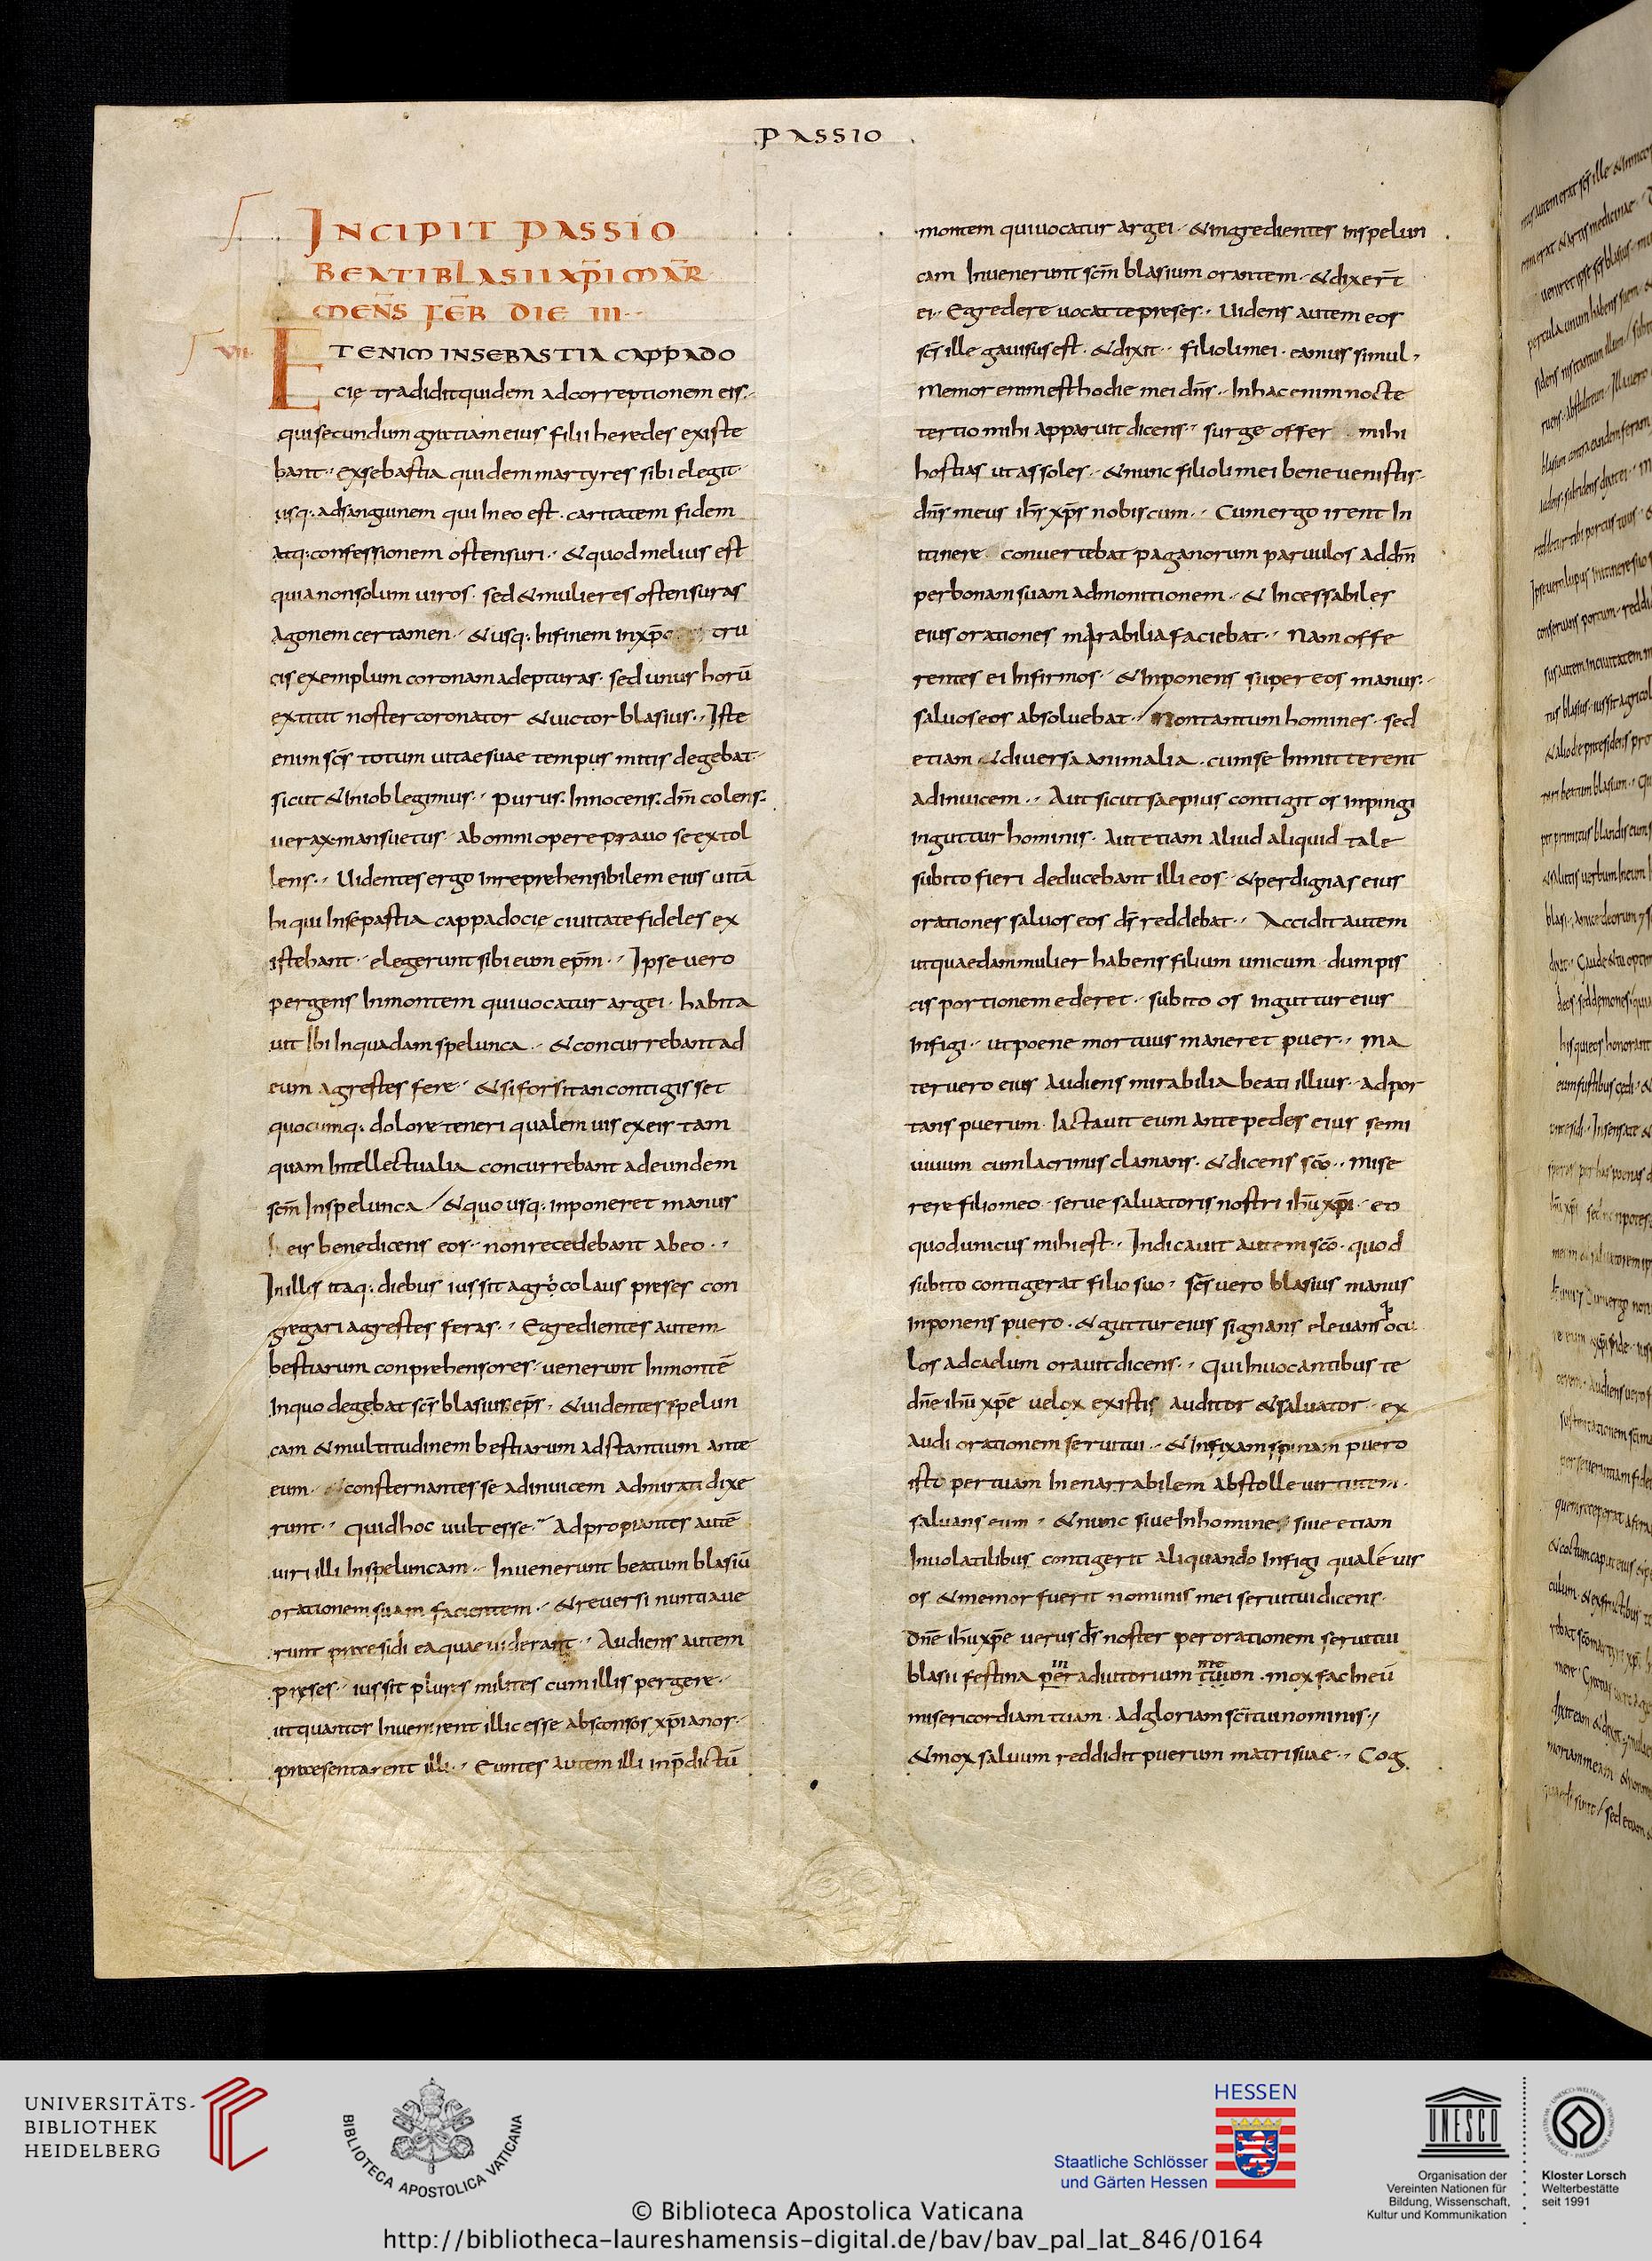 PASSIO
INCIPIT PASSIO
BEATI BLASII XP̄I MAR̄
MEN̄S FEB̄R DIE III
VII
ETENIM IN SEBASTIA CAPPADO
cię tradidit quidem ad correptionem eis.
qui secundum gratiam eius filii heredes existe
bant. exsebastia quidem martyres sibi elegit.
usq. ad sanguinem qui in eo est. caritatem fidem
atq. confessionem ostensuri. & quod melius est
quia non solum uiros. sed & mulieres ostensuras
agonem certamen. & usq. in finem in xp̄o tru
cis exemplum coronam adepturas. sed unus horū
extitit noster coronator & uictor blasius. Iste
enim sc̄s totum uitae suae tempus mitis degebat.
sicut & in iob legimus. purus. innocens. dm̄ colens.
uerax. mansuetus. ab omni opere prauo se extol
lens. Uidentes ergo inreprehensibilem eius uitā
hi qui in sepastia cappadocię ciuitate fideles ex
istebant. elegerunt sibi eum ep̄m. Ipse uero
pergens in montem qui uocatur argei. habita
uit ibi in quadam spelunca. & concurrebant ad
eum agrestes fere. & si forsitan contigisset
quocumq. dolore teneri qualem uis ex eis tam
quam intellectualia concurrebant ad eundem
sc̄m in spelunca / & quo usq. inponeret manus
eis benedicens eos. non recedebant ab eo.
In illis itaq. diebus iussit agrocolaus preses con
gregari agrestes feras. Egredientes autem
bestiarum conprehensores. uenerunt in montē
in quo degebat sc̄s blasius ep̄s. & uidentes spelun
cam & multitudinem bestiarum adstantium ante
eum. consternantes se ad inuicem admirati dixe
runt. quid hoc uult esse. Adpropiantes autē
uiri illi in speluncam. Inuenerunt beatum blasiū
orationem suam facientem. & reuersi nuntiaue
runt praesidi ea quae uiderant. Audiens autem
pręses. iussit plures milites cum illis pergere.
ut quantos inuenirent illic esse absconsos xp̄ianos.
praesentarent illi. Euntes autem illi in p̄dictū
montem qui uocatur argei. & ingredientes in spelun
cam inuenerunt sc̄m blasium orantem. & dixer̄t
ei. Egredere uocat te preses. Uidens autem eos
sc̄s ille gauisus est. & dixit. filioli mei. eamus simul.
Memor enim est hodie mei dn̄s. In hac enim nocte
tertio mihi apparuit dicens. surge offer mihi
hostias ut assoles. & nunc filioli mei bene uenistis.
dn̄s meus ih̄s xp̄s nobiscum. Cum ergo irent in
itinere conuertebat paganorum paruulos ad dm̄
per bonam suam admonitionem. & incessabiles
eius orationes mirabilia faciebat. Nam offe
rentes ei infirmos. & inponens super eos manus.
saluos eos absoluebat. / Non tantum homines. sed
etiam & diuersa animalia. cum se inmitterent
ad inuicem. Aut sicut saepius contigit os inpingi
in guttur hominis. Aut etiam aliud aliquid tale
subito fieri deducebant illi eos. & per dignas eius
orationes saluos eos ds̄ reddebat. Accidit autem
ut quaedam mulier habens filium unicum dum pis
cis portionem ederet. subito os in guttur eius
infigi. ut poene mortuus maneret puer. ma
ter uero eius audiens mirabilia beati illius. adpor
tans puerum iactauit eum ante pedes eius semi
uiuum cum lacrimis clamans. & dicens sc̄o. mise
rere filio meo. serue saluatoris nostri ih̄u xp̄i. eo
quod unicus mihi est. Indicauit autem sc̄o. quod
subito contigerat filio suo. sc̄s uero blasius manus
inponens puero. & guttur eius signans eleuans ocu
los ad caelum orauit dicens. Qui inuocantibus te
dn̄e ih̄u xp̄e uelox existis auditor & saluator. ex
audi orationem serui tui. & infixam spinam puero
isti per tuam inenarrabilem abstolle uirtutem.
saluans eum. & nunc siue in homine siue etiam
in uolatilibus contigerit aliquando infigi qualē uis
os & memor fuerit nominis mei serui tui dicens.
Dn̄e ih̄u xp̄e uerus ds̄ noster per orationem serui tui
blasii festina per in adiutorium tuum me. mox fac in eū
misericordiam tuam. Ad gloriam sc̄i tui nominis.
& mox saluum reddidit puerum matri suae. Cog
UNIVERSITÄTS-
BIBLIOTHEK
HEIDELBERG
BIBLIOTECA APOSTOLICA VATICANA
HESSEN
Staatliche Schlösser
und Gärten Hessen
UNESCO
Organisation der
Vereinten Nationen für
Bildung, Wissenschaft,
Kultur und Kommunikation
Kloster Lorsch
Welterbestätte
seit 1991
© Biblioteca Apostolica Vaticana
http://bibliotheca-laureshamensis-digital.de/bav/bav_pal_lat_846/0164